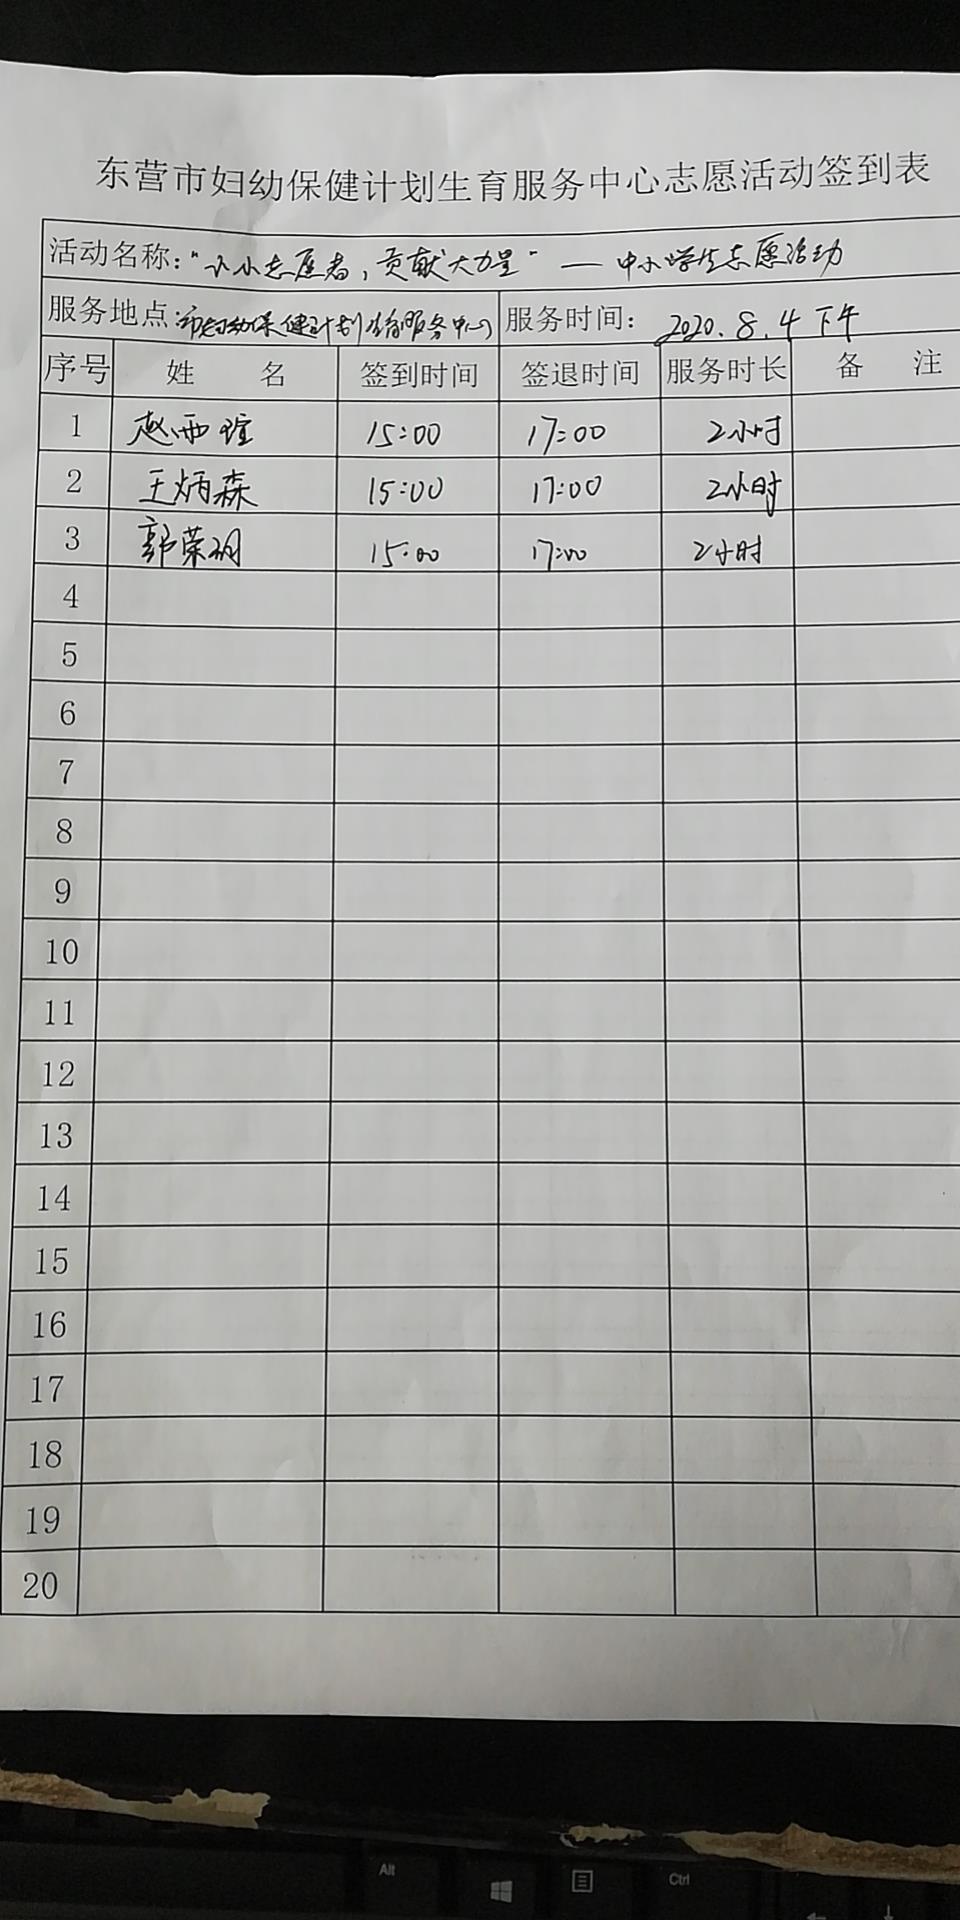 东营市妇幼保健计划生育服务中心志愿活动签到表
活动名称：“小小志愿者，贡献大力量”——中小学生志愿活动
服务地点：市妇幼保健计划生育服务中心 服务时间：2020.8.4下午
序号 姓 名 签到时间 签退时间 服务时长 备 注
1 赵西瑄 15:00 17:00 2小时
2 王炳森 15:00 17:00 2小时
3 郭荣 15:00 17:00 2小时
4
5
6
7
8
9
10
11
12
13
14
15
16
17
18
19
20
Alt Ctrl